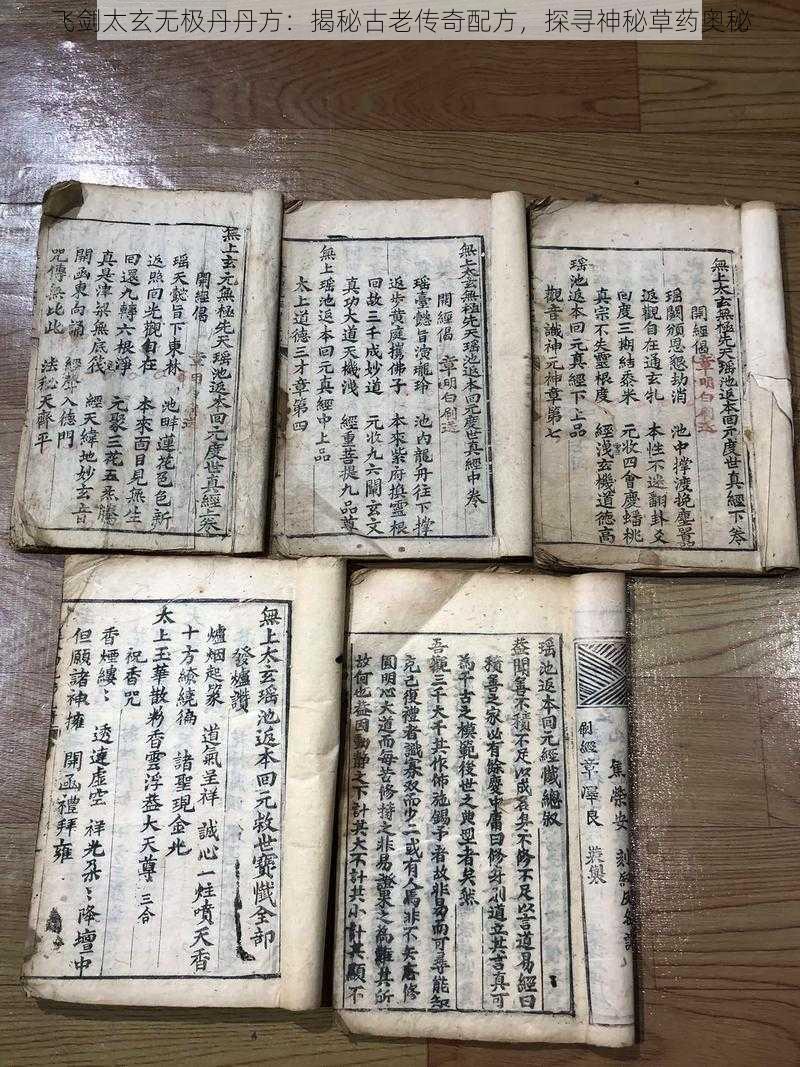 飞剑太玄无极丹丹方：揭秘古老传奇配方，探寻神秘草药奥秘
無上玄元無極先天瑶池返本回元度世真經上卷
開經偈
瑶天懿旨下東林 池畔蓮花色色新
返照回光觀自在 本來面目見無生
回還九轉六根淨 元聚三花五炁騰
真是津梁無底筏 經天緯地妙玄音
開函東向誦 經聲入德門
咒傳無比此 法秘天齊平
無上太玄無極先天瑶池返本回元度世真經中卷
開經偈 章明白刷送
瑶臺懿旨演瓏玲 池內龍舟往下撑
返步黄庭携佛子 本來紫府換靈根
回故三千成妙道 元收九六闡玄文
真功大道天機淺 經重菩提九品尊
無上瑶池返本回元真經中上品
太上道德三才章第四
無上太玄無極先天瑶池返本回元度世真經下卷
開經偈 章明白刷送
瑶闕頒恩懇劫消 池中撑渡挽塵囂
返觀自在通玄牝 本性不迷翻卦爻
回度三期結泰米 元收四會慶蟠桃
真宗不失靈根度 經淺玄機道德高
瑶池返本回元真經下上品
觀音識神元神章第七
無上太玄瑶池返本回元救世寶懺全部
發爐讚
爐烟起篆 道氣呈祥 誠心一炷噴天香
十方繚繞徧 諸聖現金光
太上玉華散彩香雲浮蓋大天尊 三合
祝香咒
香煙縷縷 透達虛空 祥光朵朵降壇中
但願諸神擁 開函禮拜雍
瑶池返本回元經懺總叙
蓋聞善不積不足以成善真不修不足以言道易經曰
積善之家必有餘慶中庸曰修身則道立其言真可
為千古之模範後世之典型者矣然
吾觀三千大千其作佈施錫予者故非易而可尋能知
克己復禮者誠寡双而少二或有人焉非不矢齋修
圓明心大道而每苦修持之非易證果之為難其所
故何也蓋因動静之下計其大不計其小計其顯不
刷經章澤良 裝集
焦榮安